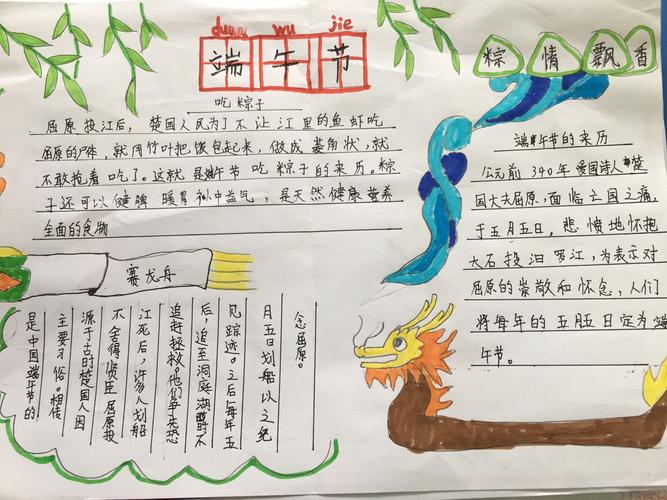 duan wu jie
端午节
粽情飘香
吃粽子
屈原投江后，楚国人民为了不让江里的鱼虾吃
屈原的尸体，就用竹叶把饭包起来，做成菱角状，就
不敢抢着吃了。这就是端午节吃粽子的来历。粽
子还可以健脾暖胃补中益气，是天然健康营养
全面的食物
端午节的来历
公元前340年爱国诗人楚
国大夫屈原，面临亡国之痛，
于五月五日，悲愤地怀抱
大石投汨罗江，为表示对
屈原的崇敬和怀念，人们
将每年的五月五日定为端
午节。
赛龙舟
是中国端午节的
主要习俗。相传
源于古时楚国人因
不舍得贤臣屈原投
江死后，许多人划船
追赶拯救。他们争先恐
后，追至洞庭湖不
见踪迹。之后每年五
月五日划船以之纪
念屈原。